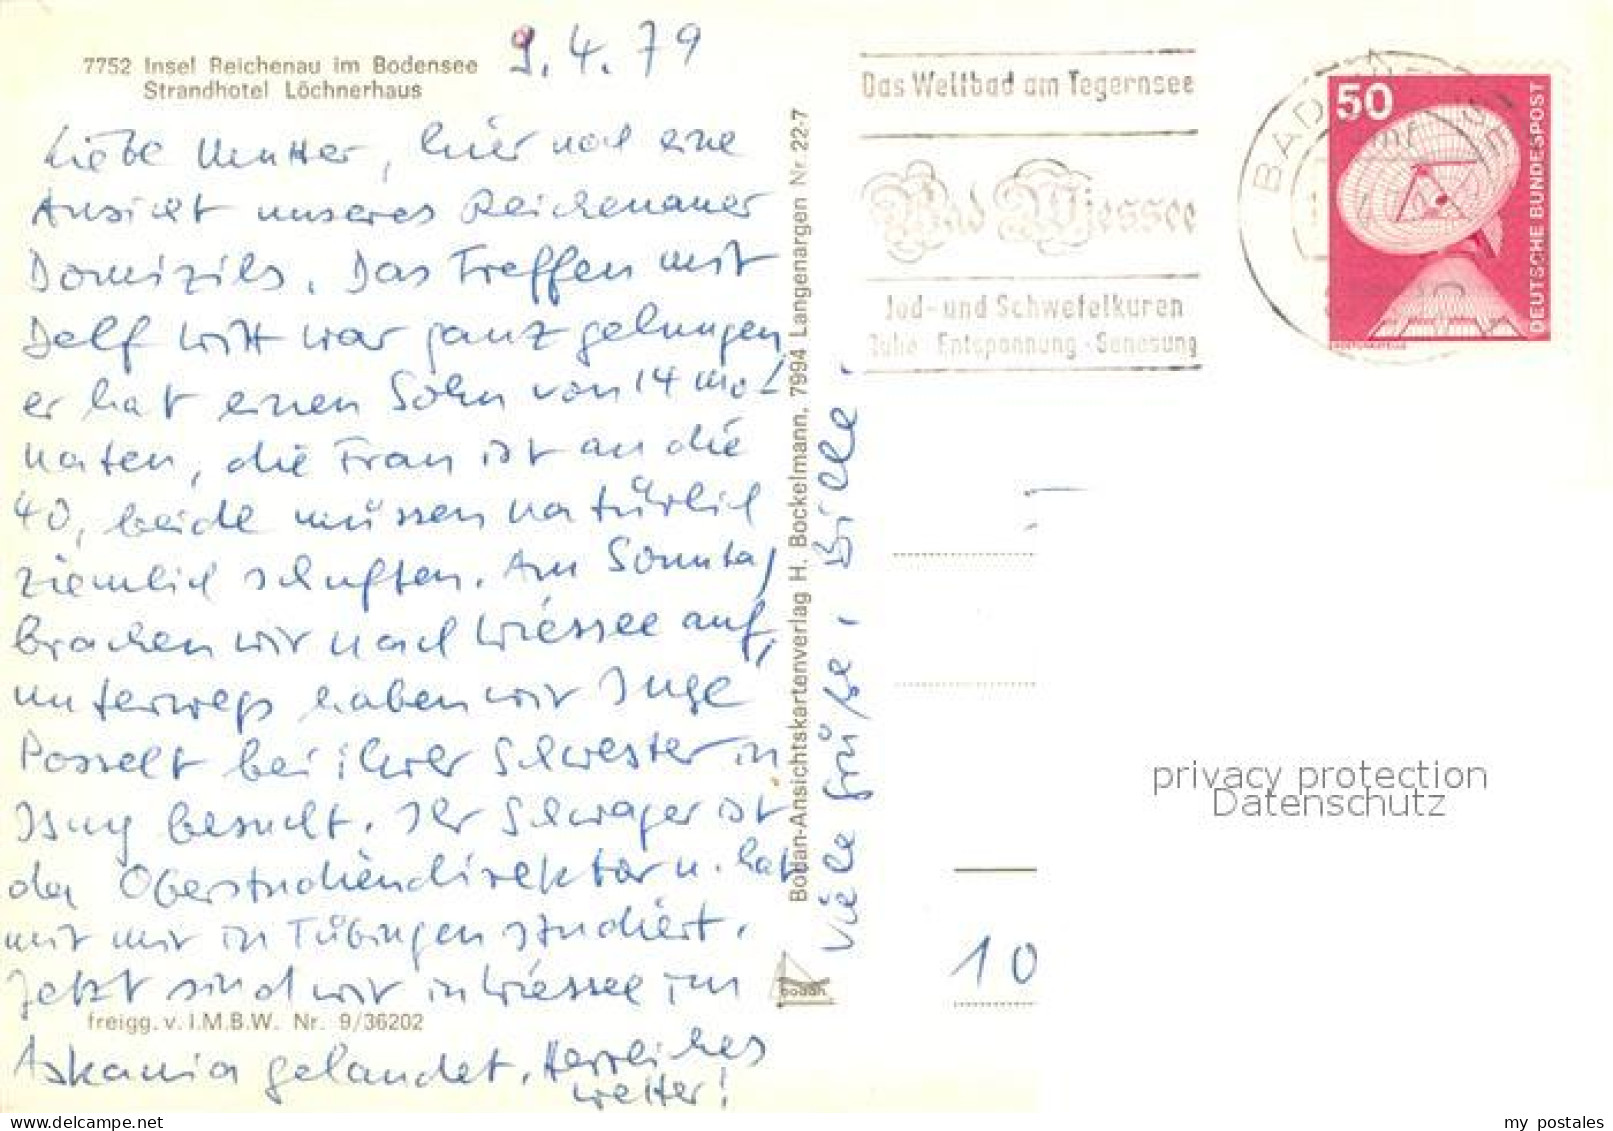 7752 Insel Reichenau im Bodensee
Strandhotel Löchnerhaus
9.4.79
Liebe Mutter, hier noch eine
Ansicht unseres Reichenauer
Domizils. Das Treffen mit
Delf Witt war ganz gelungen
er hat einen Sohn von 14 Mo-
naten, die Frau ist an die
40, beide müssen natürlich
ziemlich schuften. Am Sonntag
brachen wir nach Wiessee auf,
unterwegs haben wir Inge
Posselt bei ihrer Schwester in
Isny besucht. Ihr Schwager ist
da Oberstudiendirektor u. hat
mit mir in Tübingen studiert.
Jetzt sind wir in Wiessee im
freigg. v. I.M.B.W. Nr. 9/36202
Askania gelandet. Herrliches
Wetter!
Viele Grüße,
Bodan-Ansichtskartenverlag H. Bockelmann, 7994 Langenargen Nr. 22-7
bodan
Das Weltbad am Tegernsee
Bad Wiessee
Jod- und Schwefelkuren
Ruhe · Entspannung · Genesung
BAD
50
DEUTSCHE BUNDESPOST
10
privacy protection
Datenschutz
my postales